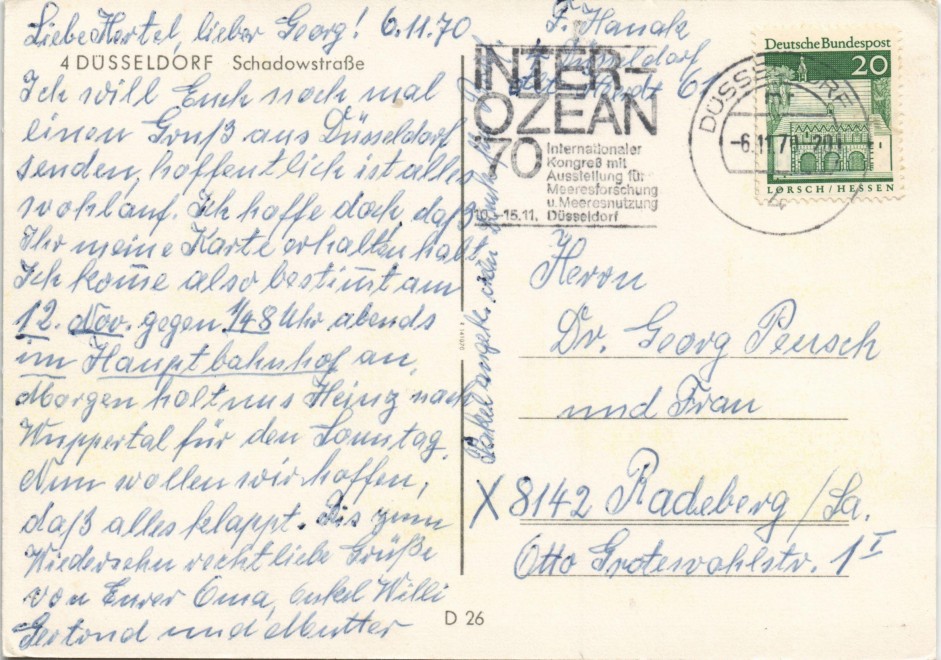 Liebe Hertel, lieber Georg! 6.11.70
4 DÜSSELDORF Schadowstraße
Ich will Euch noch mal
einen Gruß aus Düsseldorf
senden, hoffentlich ist alles
wohlauf. Ich hoffe doch, daß
Ihr meine Karte erhalten habt.
Ich kom̅e also bestim̅t am
12. Nov. gegen 1/4 8 Uhr abends
im Hauptbahnhof an,
Morgen holt uns Heinz nach
Wuppertal für den Sonntag.
Nun wollen wir hoffen,
daß alles klappt. Bis zum
Wiedersehn recht liebe Grüße
von Eurer Oma, Onkel Willi
Gertond und Mutter
D 26
F. Hanack
Düsseldorf
61
INTER-
OZEAN
'70
Internationaler
Kongreß mit
Ausstellung für
Meeresforschung
u. Meeresnutzung
10.-15.11. Düsseldorf
DÜSSELDORF
-6.11.70-20
Deutsche Bundespost
20
LORSCH/HESSEN
Herrn
Dr. Georg Peusch
und Frau
X 8142 Radeberg/Sa.
Otto Grotewohlstr. 1 I